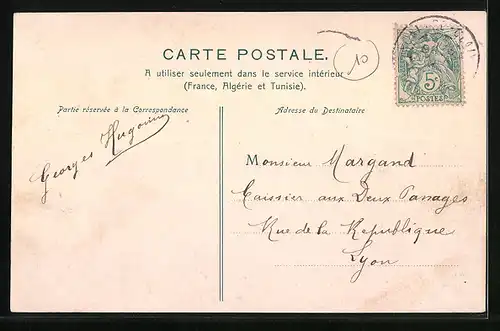 CARTE POSTALE.
A utiliser seulement dans le service intérieur
(France, Algérie et Tunisie).
10
5c
POSTES
Partie réservée à la Correspondance
Adresse du Destinataire
Georges Hugonin
Monsieur Margand
Caissier aux Deux Panages
Rue de la Republique
Lyon